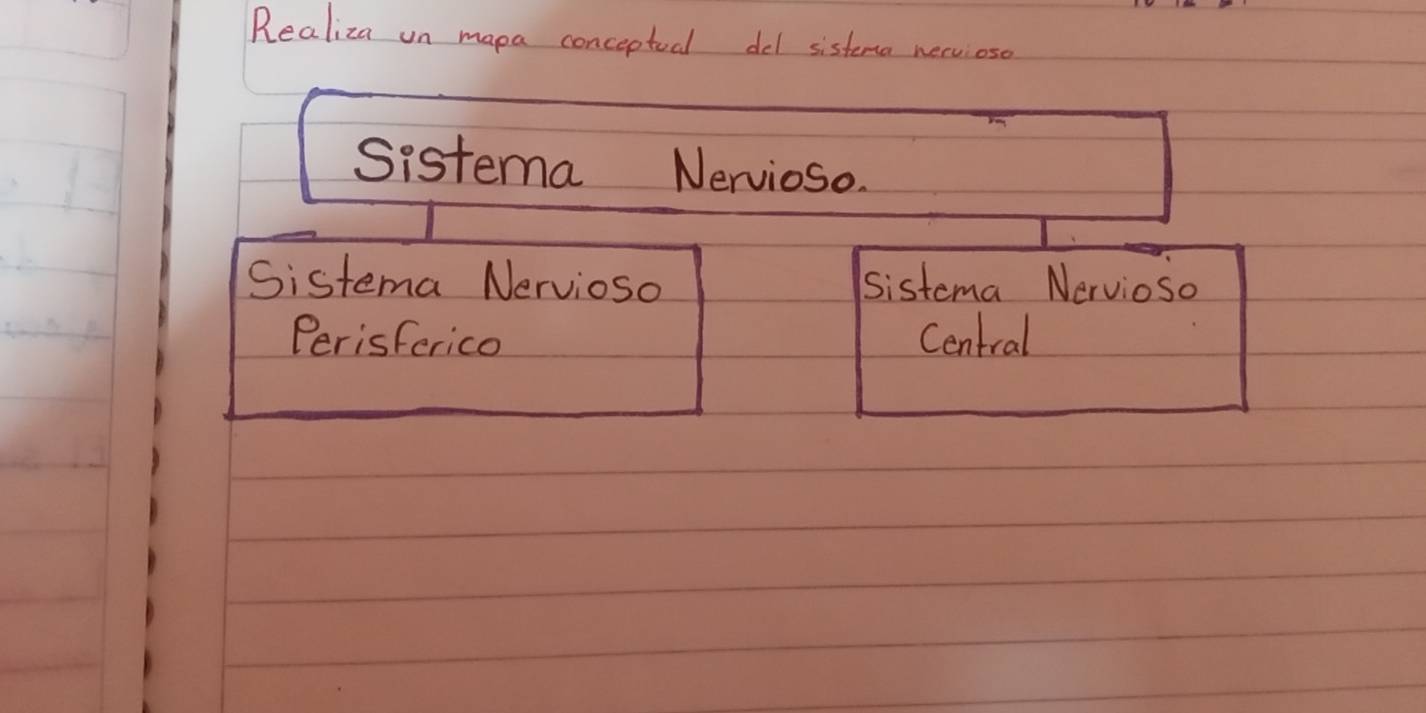 Realiza un mapa conceptual del sistema nervioso
Sistema Nervioso.
Sistema Nervioso
Perisferico
Sistema Nervioso
Central